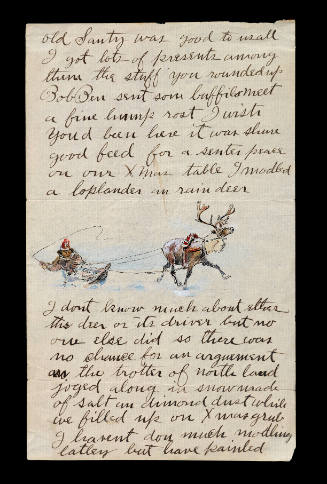 old Santy was good to us all
I got lots of presents among
them the stuff you rounded up
Bob Ben sent som buffilo meet
a fine hump rost I wish
You'd been here it was shure
good feed for a senter peace
on our X mas table I modled
a loplander an rain deer
I dont know much about ether
the deer or its driver but no
one else did so there was
no chance for an arguement
as the trotter of north land
joged along in snow made
of salt an dimond dust while
we filled up on X mas grub
I havent don much modling
latley but have painted